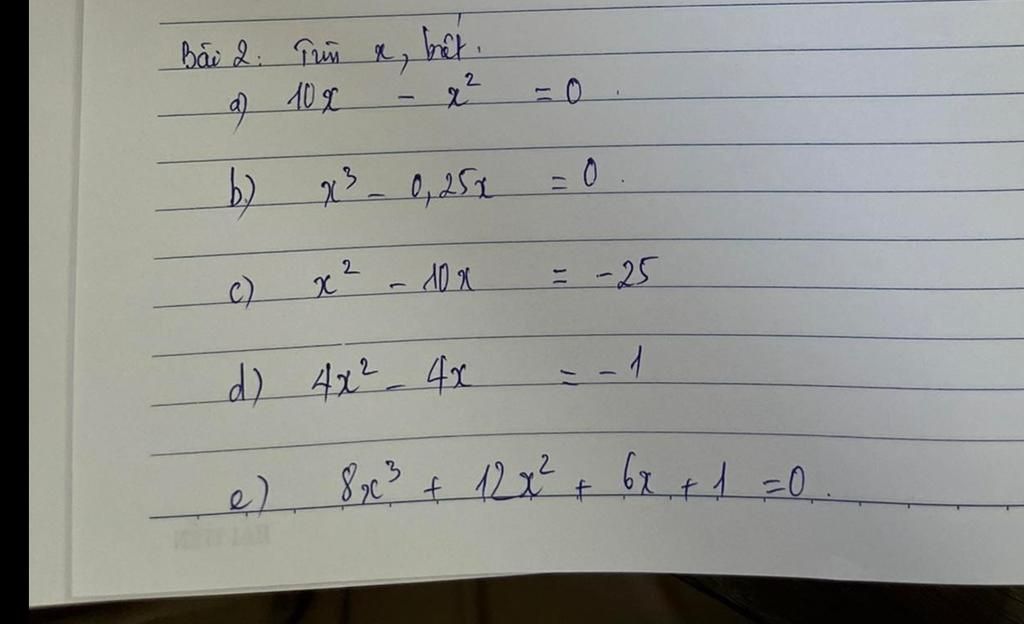 Bài 2. Tìm x, biết.
a) 10x - x² = 0.
b) x³ - 0,25x = 0.
c) x² - 10x = -25
d) 4x² - 4x = -1
e) 8x³ + 12x² + 6x + 1 = 0.